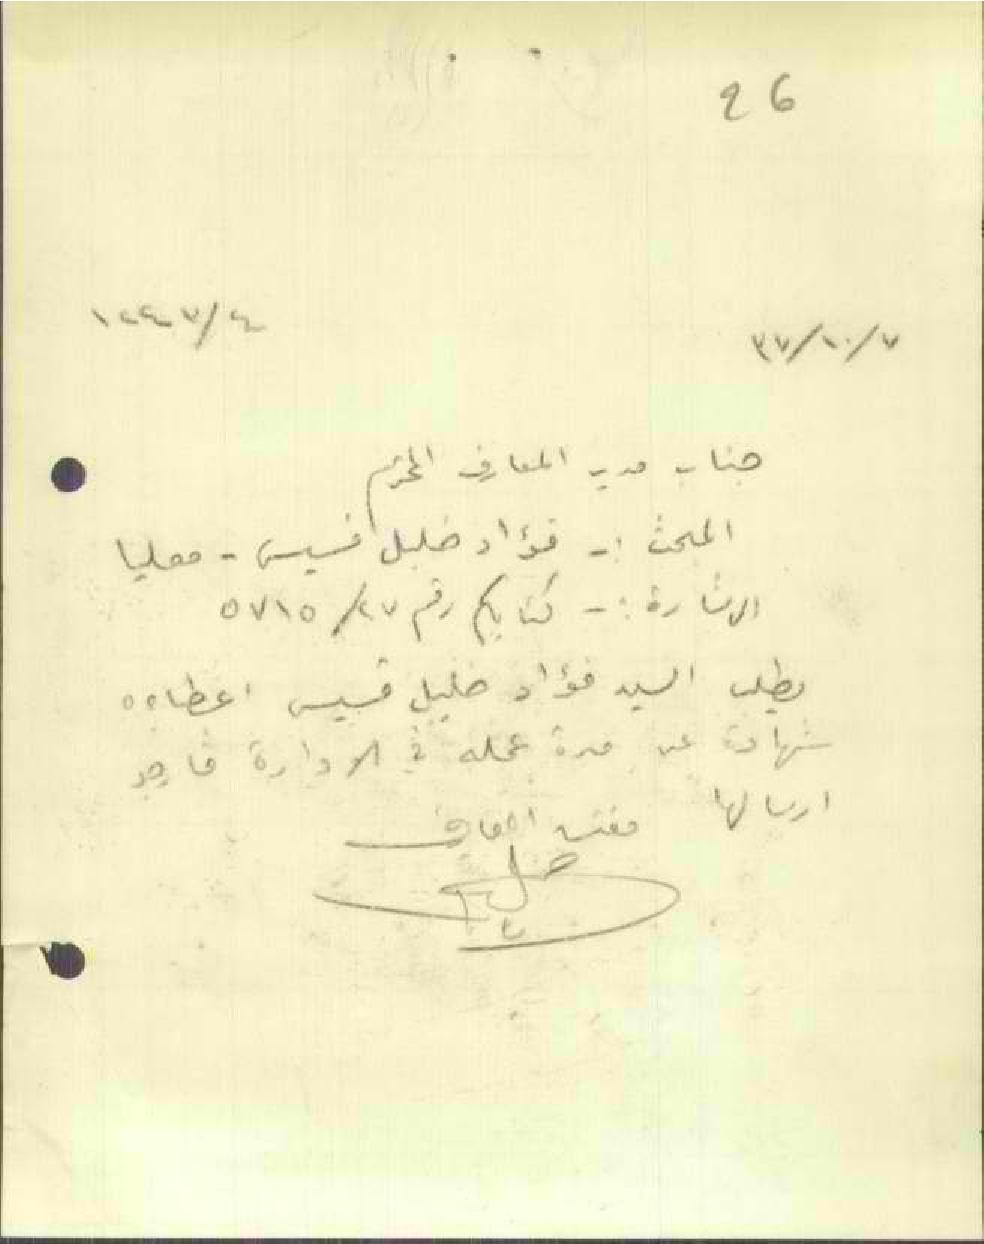 26
٣٧/١٠/٧
جناب مدير المعارف المحترم
المبحث :- فؤاد خليل قسيس - معليا
الاشارة :- كتابكم رقم ٢٧/ ٥٧١٥
يطلب السيد فؤاد خليل قسيس اعطاءه
شهادة عن مدة عمله في الادارة فارجو
ارسالها
مفتش المعارف